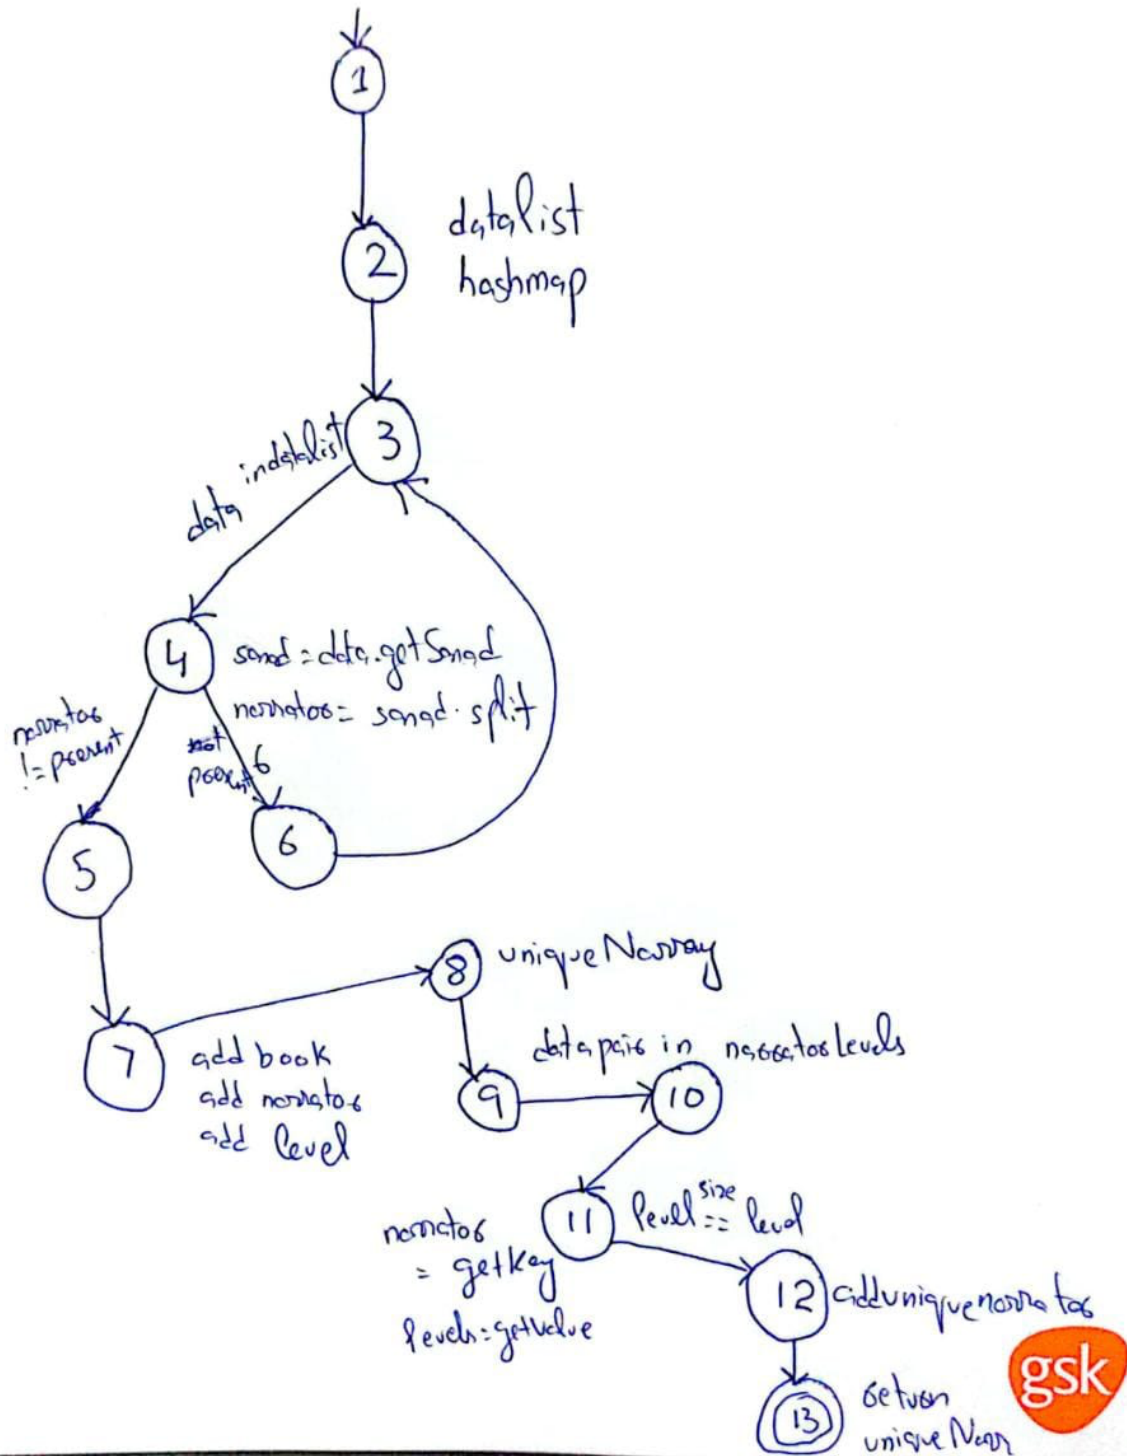 1
2
datalist
hashmap
3
data in datalist
4
sanad = data.getSanad
narrator = sanad.split
narrator
!= present
present
5
6
7
add book
add narrator
add level
8
uniqueNarray
9
data pair in narratorLevels
10
11
narrator
= getKey
levels = getValue
level size == level
12
adduniquenarrator
13
return
uniqueNarr
gsk